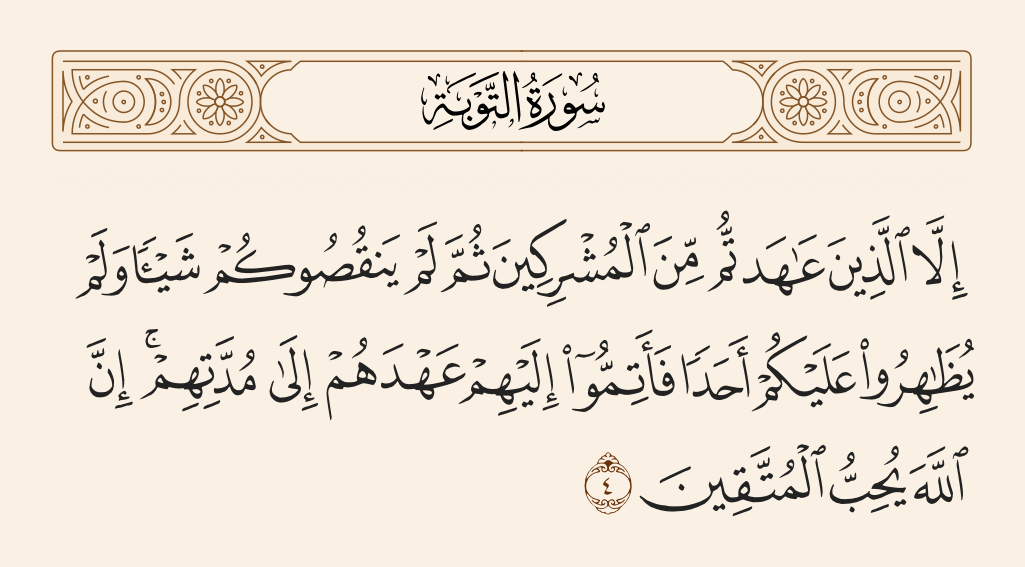 سُورَةُ التَّوْبَةِ
إِلَّا ٱلَّذِينَ عَـٰهَدتُّم مِّنَ ٱلْمُشْرِكِينَ ثُمَّ لَمْ يَنقُصُوكُمْ شَيْـًٔا وَلَمْ
يُظَـٰهِرُوا۟ عَلَيْكُمْ أَحَدًا فَأَتِمُّوٓا۟ إِلَيْهِمْ عَهْدَهُمْ إِلَىٰ مُدَّتِهِمْ ۚ إِنَّ
ٱللَّهَ يُحِبُّ ٱلْمُتَّقِينَ ٤